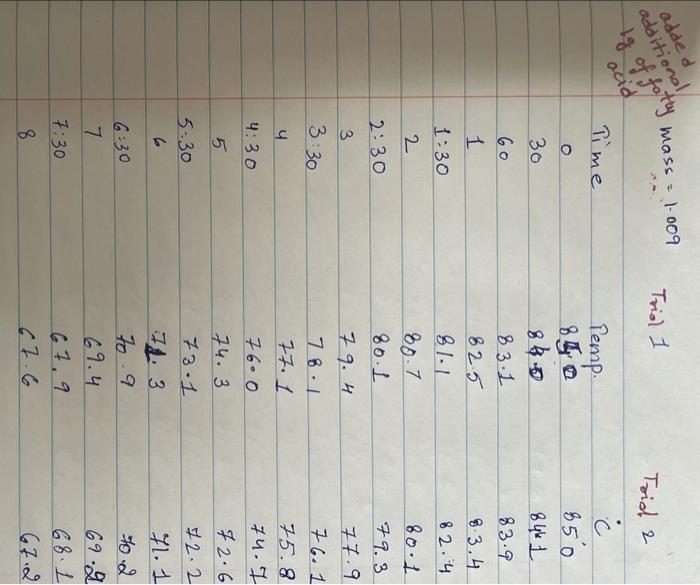 added
additional
1g of fatty
acid
mass = 1.009 Trial 1 Trial 2
Time Temp. °C
0 85.0
30 84.1
60 83.1 83.9
1 82.5 83.4
1:30 81.1 82.4
2 80.7 80.1
2:30 80.1 79.3
3 79.4 77.9
3:30 78.1 76.1
4 77.1 75.8
4:30 76.0 74.7
5 74.3 72.6
5:30 73.1 72.2
6 71.3 71.1
6:30 70.9 70.2
7 69.4
7:30 67.9 68.1
8 67.6 67.2